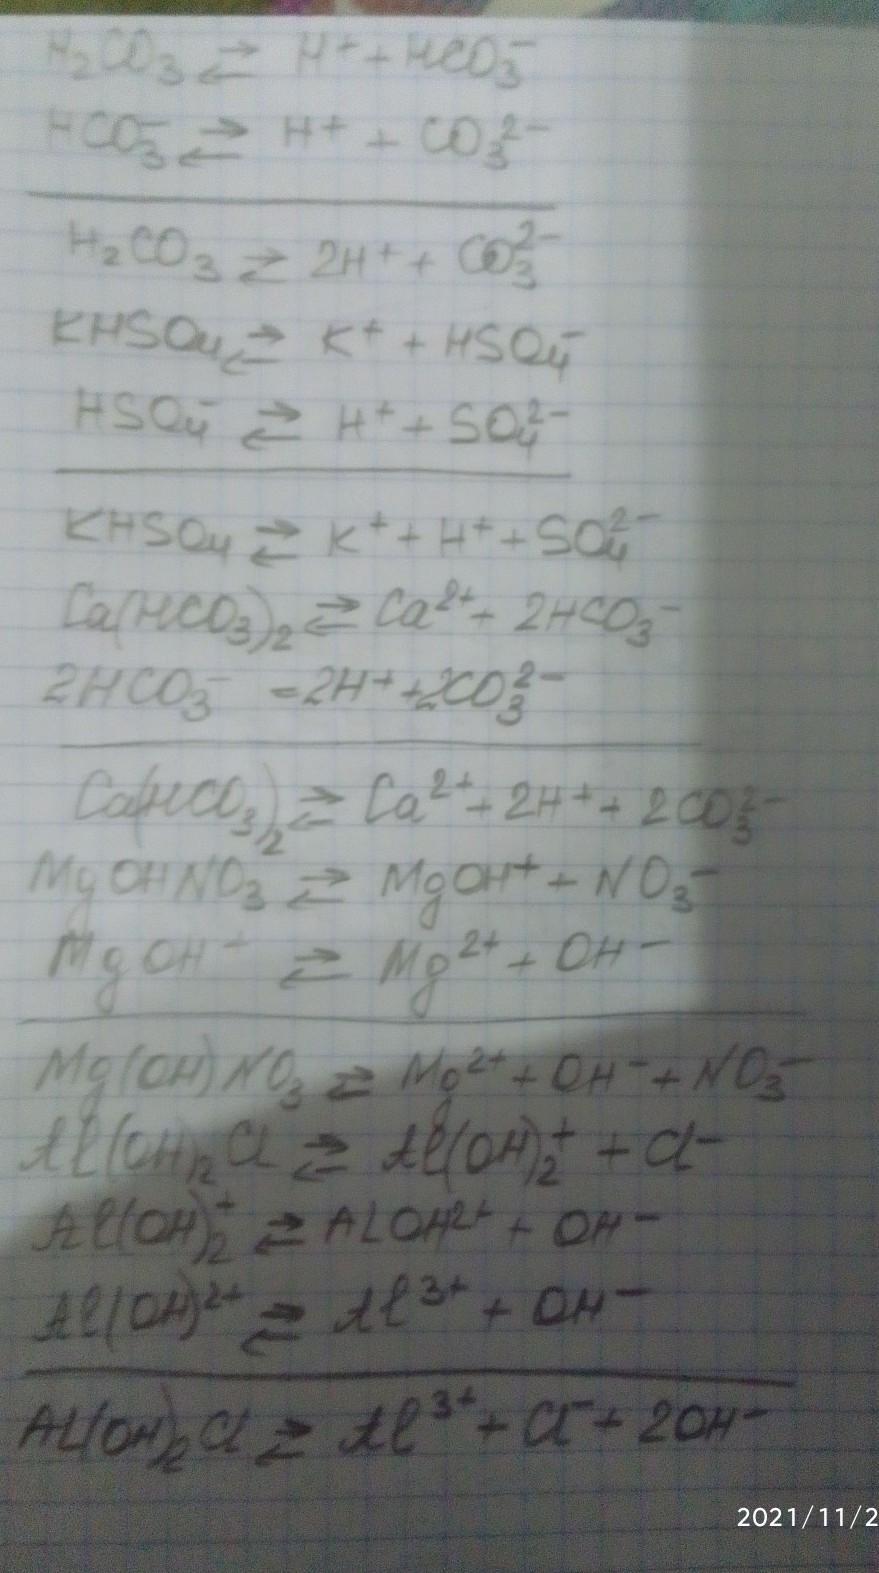 H₂CO₃ ⇄ H⁺ + HCO₃⁻
HCO₃⁻ ⇄ H⁺ + CO₃²⁻
H₂CO₃ ⇄ 2H⁺ + CO₃²⁻
KHSO₄ ⇄ K⁺ + HSO₄⁻
HSO₄⁻ ⇄ H⁺ + SO₄²⁻
KHSO₄ ⇄ K⁺ + H⁺ + SO₄²⁻
Ca(HCO₃)₂ ⇄ Ca²⁺ + 2HCO₃⁻
2HCO₃⁻ = 2H⁺ + 2CO₃²⁻
Ca(HCO₃)₂ ⇄ Ca²⁺ + 2H⁺ + 2CO₃²⁻
MgOHNO₃ ⇄ MgOH⁺ + NO₃⁻
MgOH⁺ ⇄ Mg²⁺ + OH⁻
Mg(OH)NO₃ ⇄ Mg²⁺ + OH⁻ + NO₃⁻
Al(OH)₂Cl ⇄ Al(OH)₂⁺ + Cl⁻
Al(OH)₂⁺ ⇄ AlOH²⁺ + OH⁻
Al(OH)²⁺ ⇄ Al³⁺ + OH⁻
Al(OH)₂Cl ⇄ Al³⁺ + Cl⁻ + 2OH⁻
2021/11/2